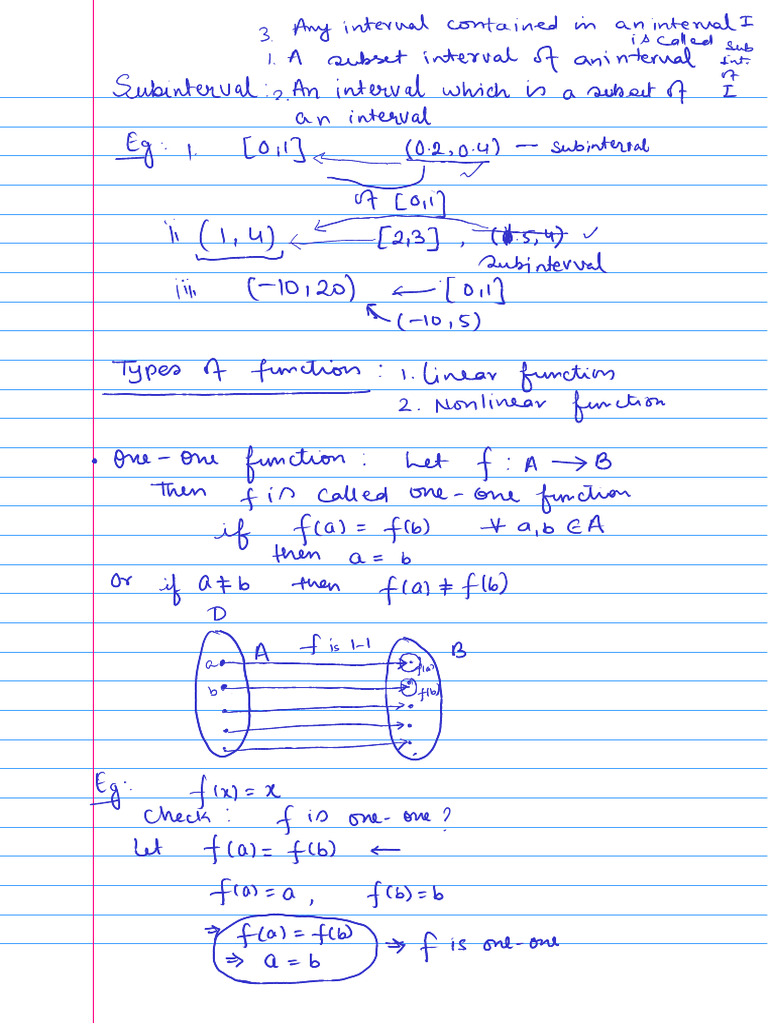 3. Any interval contained in an interval I
is called sub
int.
of
I
1. A subset interval of an interval
Subinterval: 2. An interval which is a subset of
an interval
Eg: 1. [0,1] ← (0.2, 0.4) — subinterval
✓
of [0,1]
ii, (1, 4) ← [2,3] , (1.5, 4) ✓
subinterval
iii, (-10, 20) ← [0,1]
(-10, 5)
Types of function: 1. Linear function
2. Nonlinear function
• One-One function: Let f : A → B
Then f is called one-one function
if f(a) = f(b) ∀ a,b ∈ A
then a = b
or if a ≠ b then f(a) ≠ f(b)
D
A f is 1-1 B
a f(a)
b f(b)
Eg: f(x) = x
Check: f is one-one?
Let f(a) = f(b) ←
f(a) = a , f(b) = b
⇒ f(a) = f(b)
⇒ a = b ⇒ f is one-one